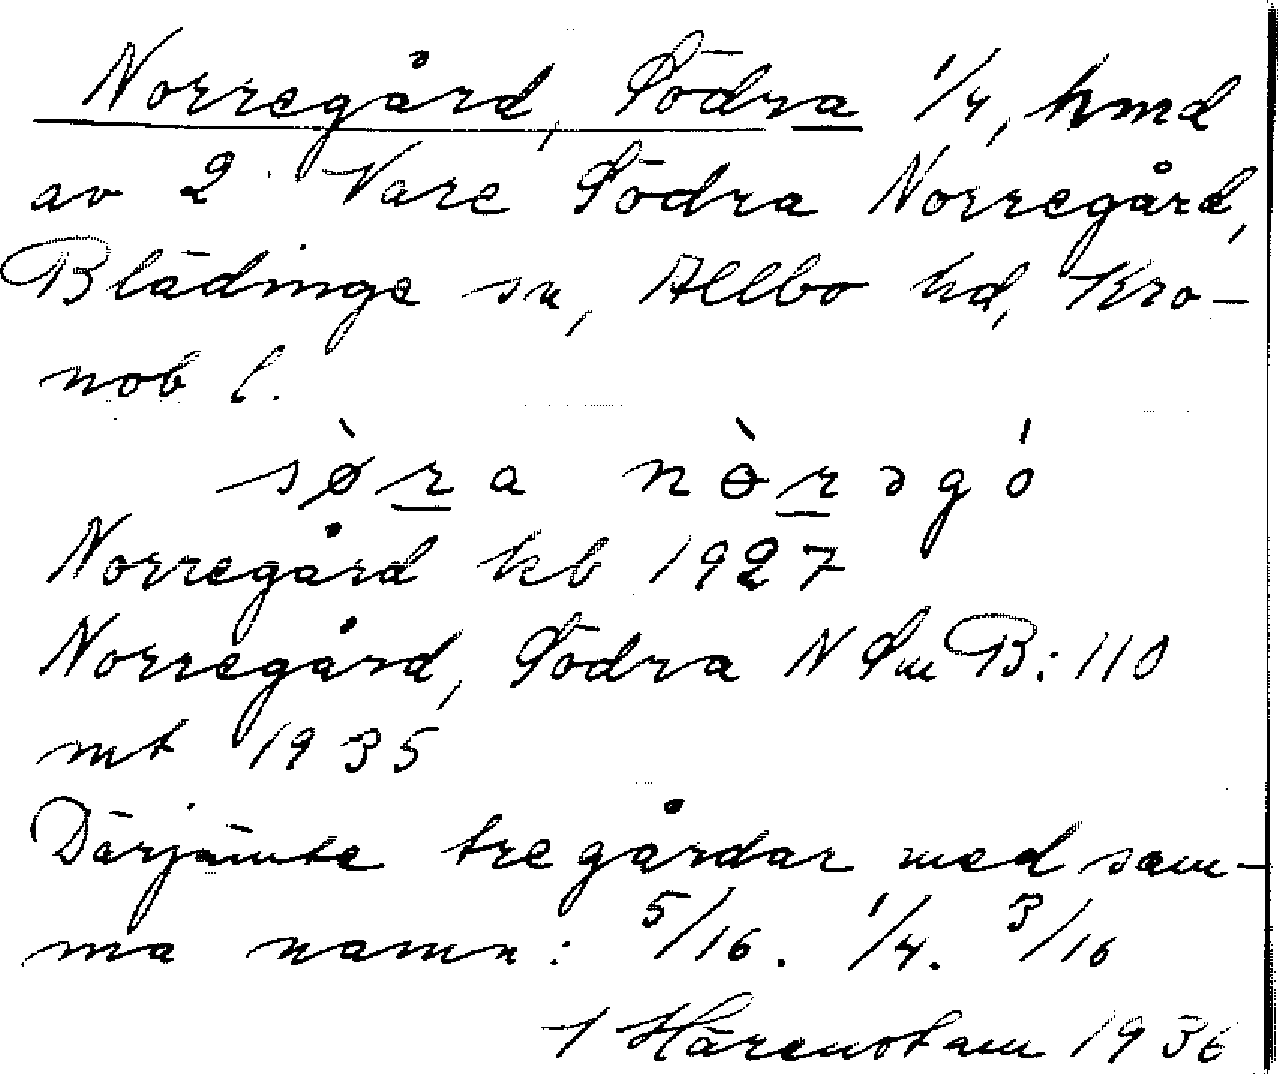 Norregård, Södra 1/4, hmd
av 2 Vare Södra Norregård,
Blädinge sn, Allbo hd, Kro-
nob l.
sø̀ra nɵ̀rəgó
Norregård kb 1927
Norregård, Södra N Sm B: 110
mt 1935
Därjämte tre gårdar med sam-
ma namn: 5/16. 1/4. 3/16
I Härenstam 1936